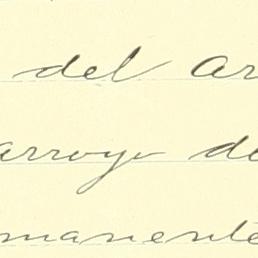 del ar
arroyo de
manente